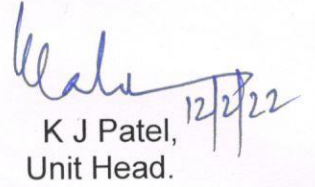 12/2/22
K J Patel,
Unit Head.